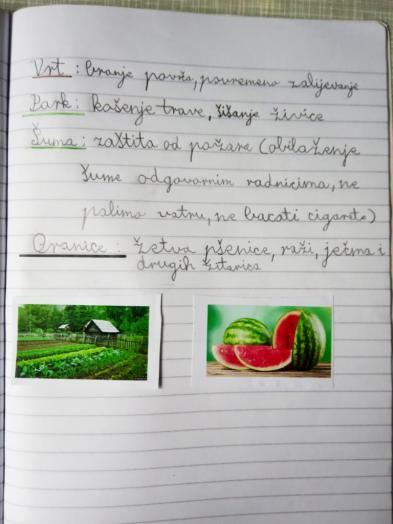 Vrt : branje povrća, povremeno zalijevanje
Park : košenje trave, šišanje živice
Šuma : zaštita od požara (obilaženje
šume odgovornim radnicima, ne
palimo vatru, ne bacati cigarete)
Oranice : žetva pšenice, raži, ječma i
drugih žitarica